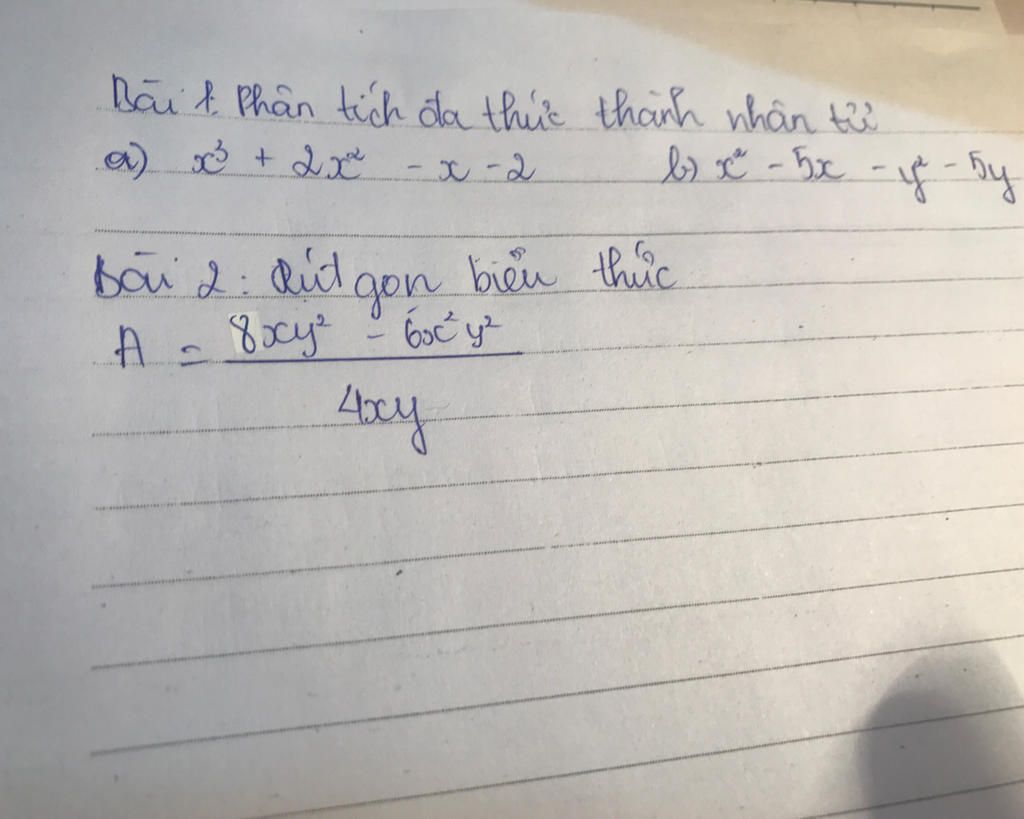 Bài 1: Phân tích đa thức thành nhân tử
a) x³ + 2x² - x - 2 b) x² - 5x - y² - 5y
Bài 2: Rút gọn biểu thức
A = 8xy² - 6x²y²
4xy